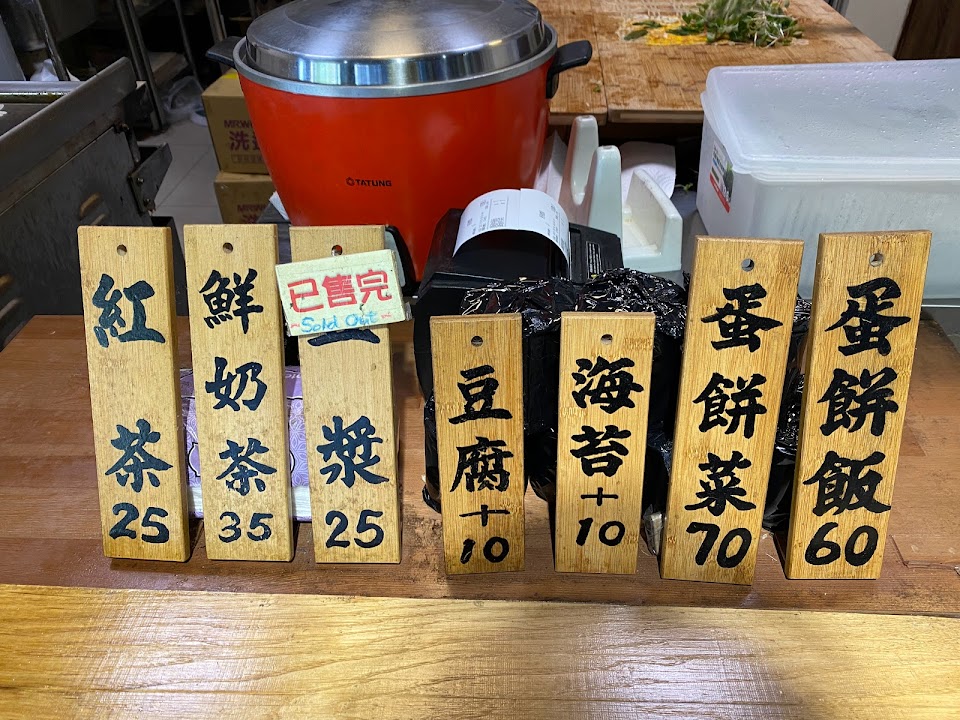 紅茶
25
鮮奶茶
35
已售完
~Sold Out~
漿
25
豆腐
+10
海苔
+10
蛋餅菜
70
蛋餅飯
60
TATUNG
MRW
洗